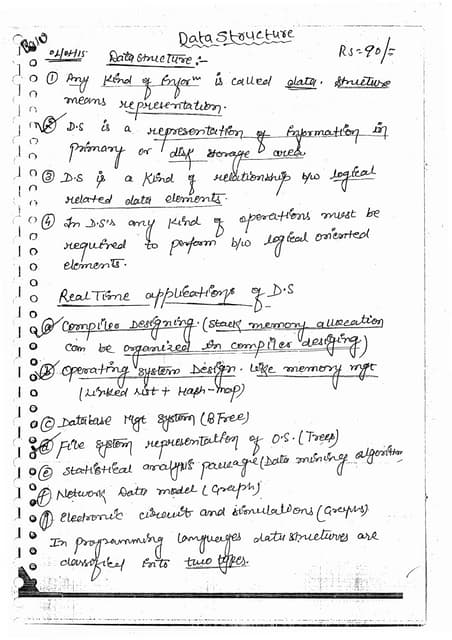 Data Structure
RS=90/-
Data structure :-
① Any kind of Inform is called data. structure
means representation.
② D.S is a representation of Information in
primary or disk storage area
③ D.S is a kind of relationship b/w logical
related data elements.
④ In D.S's any kind of operations must be
required to perform b/w logical oriented
elements.
Real Time applications of D.S
ⓐ Compiler Designing. (stack memory allocation
can be organized in compiler designing)
ⓑ Operating System Design. like memory mgt
(Linked list + Hash-map)
ⓒ Database Mgt System (B Free)
ⓓ File system representation of O.S. (Trees)
ⓔ statistical analysis package (Data mining algorithm
ⓕ Network Data model (Graph)
ⓖ Electronic circuit and simulations (Graphs)
In programming languages data structures are
classified into two types.